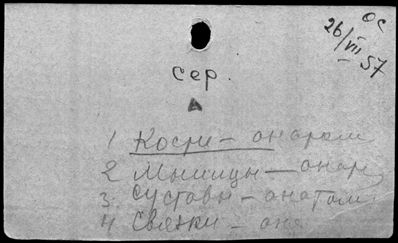 ос
26/VII 57
сер.
А
1 Кости – анатом
2 Мышцы – анат
3. Суставы – анатом
4 Связки – ана